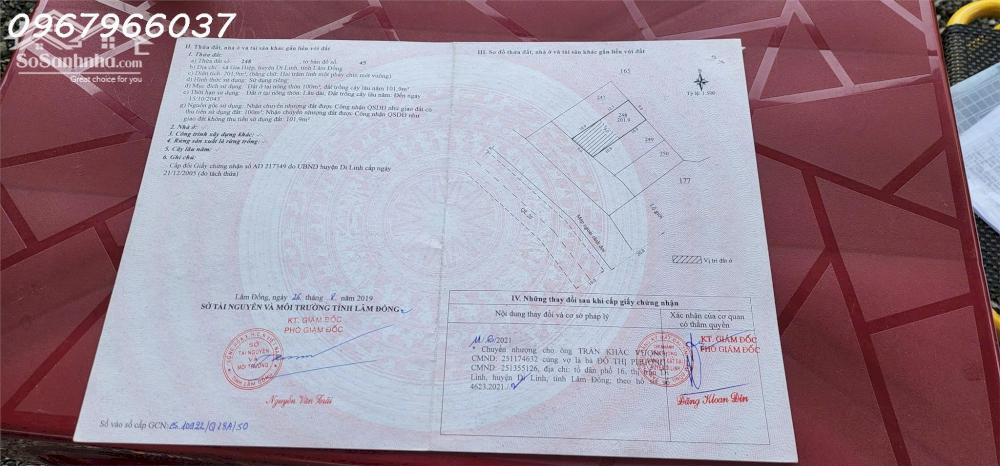 0967966037
SoSanhnha.com
II. Thửa đất, nhà ở và tài sản khác gắn liền với đất
1. Thửa đất:
a) Thửa đất số: 248 tờ bản đồ số: 45
b) Địa chỉ: xã Gia Hiệp, huyện Di Linh, tỉnh Lâm Đồng
c) Diện tích: 201,9m², (bằng chữ: Hai trăm linh một phảy chín mét vuông)
d) Hình thức sử dụng: Sử dụng riêng
đ) Mục đích sử dụng: Đất ở tại nông thôn 100m², đất trồng cây lâu năm 101,9m²
e) Thời hạn sử dụng: Đất ở tại nông thôn: Lâu dài, Đất trồng cây lâu năm: Đến ngày
15/10/2043
g) Nguồn gốc sử dụng: Nhận chuyển nhượng đất được Công nhận QSDĐ như giao đất có
thu tiền sử dụng đất: 100m²; Nhận chuyển nhượng đất được Công nhận QSDĐ như
giao đất không thu tiền sử dụng đất: 101,9m²
2. Nhà ở: -/-
3. Công trình xây dựng khác: -/-
4. Rừng sản xuất là rừng trồng: -/-
5. Cây lâu năm: -/-
6. Ghi chú:
Cấp đổi Giấy chứng nhận số AD 217549 do UBND huyện Di Linh cấp ngày
21/12/2005 (do tách thửa)
Lâm Đồng, ngày 26 tháng 8 năm 2019
SỞ TÀI NGUYÊN VÀ MÔI TRƯỜNG TỈNH LÂM ĐỒNG
KT. GIÁM ĐỐC
PHÓ GIÁM ĐỐC
SỞ
TÀI NGUYÊN
VÀ
MÔI TRƯỜNG
TỈNH LÂM ĐỒNG
Nguyễn Văn Trãi
Số vào sổ cấp GCN:
III. Sơ đồ thửa đất, nhà ở và tài sản khác gắn liền với đất
165
Tỷ lệ 1:500
247
248
201.9
249
250
177
Lộ giới
QL 20
Vị trí đất ở
IV. Những thay đổi sau khi cấp giấy chứng nhận
Nội dung thay đổi và cơ sở pháp lý
Xác nhận của cơ quan
có thẩm quyền
2021
* Chuyển nhượng cho ông TRẦN KHẮC VƯƠNG
CMND: 251174632 cùng vợ là bà ĐỖ THỊ
CMND: 251355126, địa chỉ: tổ dân phố 16, thị trấn Di
Linh, huyện Di Linh, tỉnh Lâm Đồng; theo hồ sơ
4623.2021./.
KT. GIÁM ĐỐC
PHÓ GIÁM ĐỐC
Đặng Kloan Đin